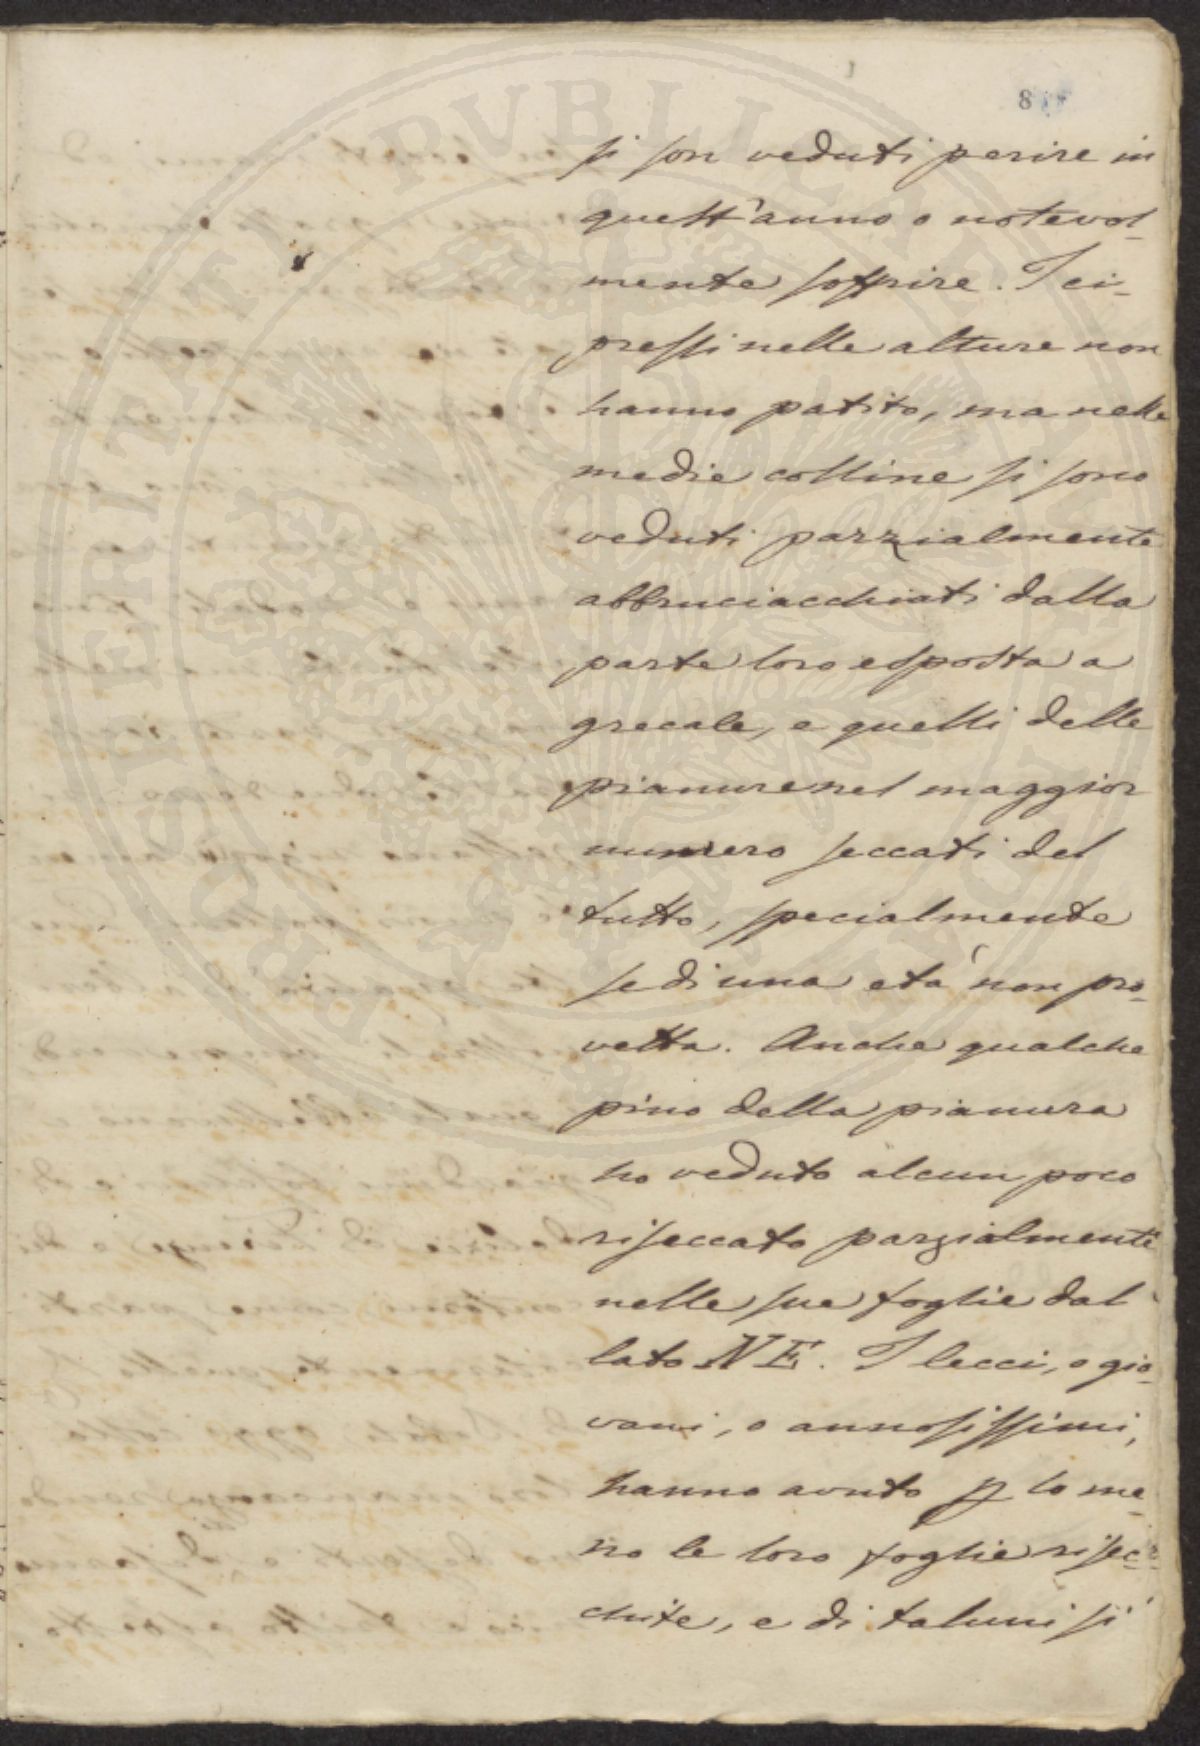 8
si son veduti perire in
quest'anno o notevol-
mente soffrire. I ci-
pressi nelle alture non
hanno patito, ma nelle
medie colline si sono
veduti parzialmente
abbruciacchiati dalla
parte loro esposta a
grecale, e quelli delle
pianure nel maggior
numero seccati del
tutto, specialmente
se di una età non pro-
vetta. Anche qualche
pino della pianura
ho veduto alcun poco
riseccato parzialmente
nelle sue foglie dal
lato NE. I lecci, o gio-
vani, o annosissimi,
hanno avuto p lo me-
no le loro foglie risec-
chite, e di taluni si
PROSPERITATI PVBLICAE